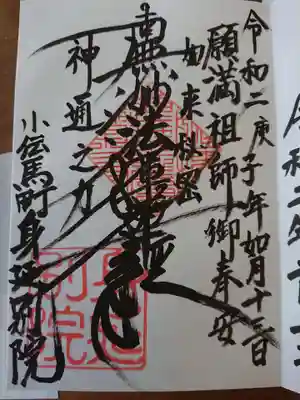 令和二庚子年如月十三日
願満祖師御奉安
如来秘密
南無妙法蓮華経
神通之力
小伝馬町身延別院
身延別院